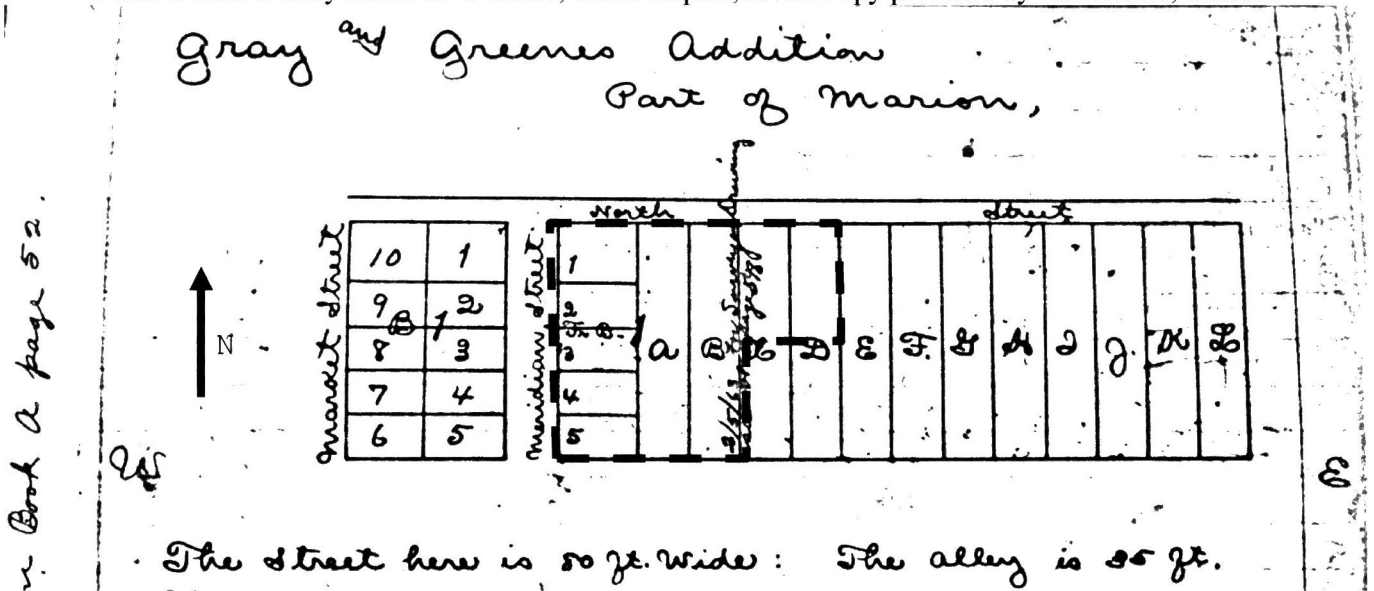 Gray and Greenes Addition
Part of Marion,
Book A page 52.
North Street
Market Street
10 1
9 2
B 1
8 3
7 4
6 5
Meridian Street
1
2
Fr B. 1
3
4
5
A B C D E F. G H I J. K L
N
W
E
The Street here is 50 ft. Wide: The alley is 25 ft.